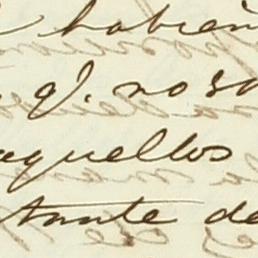 habien
q. nos
aquellos
tante de